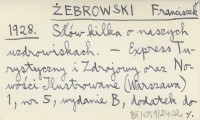 ŻEBROWSKI Franciszek
1928. Słów kilka o naszych
uzdrowiskach. – Express Tu-
rystyczny i Zdrojowy oraz No-
wości Ilustrowane (Warszawa)
1, nr 5, wydanie B, dodatek do